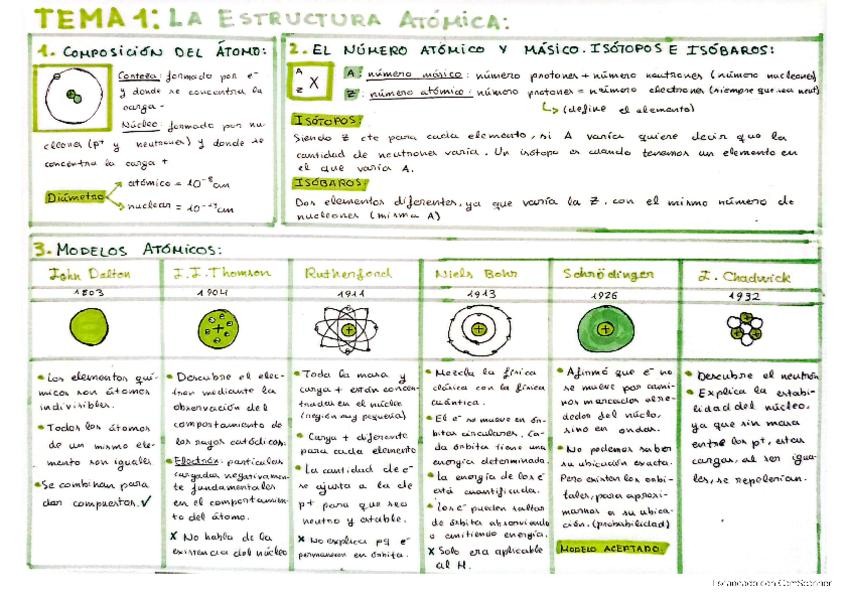 TEMA 1: LA ESTRUCTURA ATÓMICA:
1. COMPOSICIÓN DEL ÁTOMO:
Corteza: formado por e⁻
y donde se concentra la
carga -
Núcleo: formado por nu
cleones (p⁺ y neutrones) y donde se
concentra la carga +
Diámetro
atómico = 10⁻⁸cm
nuclear = 10⁻¹³cm
2. EL NÚMERO ATÓMICO Y MÁSICO. ISÓTOPOS E ISÓBAROS:
A
Z
X
A: número másico: número protones + número neutrones (número nucleones)
Z: número atómico: número protones = número electrones (siempre que sea neut)
(define el elemento)
ISÓTOPOS:
Siendo Z cte para cada elemento, si A varía quiere decir que la
cantidad de neutrones varía. Un isótopo es cuando tenemos un elemento en
el que varía A.
ISÓBAROS:
Dos elementos diferentes, ya que varía la Z, con el mismo número de
nucleones (misma A)
3. MODELOS ATÓMICOS:
John Dalton
1803
• Los elementos quí-
micos son átomos
indivisibles.
• Todos los átomos
de un mismo ele-
mento son iguales
• Se combinan para
dar compuestos. ✓
J.J. Thomson
1904
• Descubre el elec-
trón mediante la
observación del
comportamiento de
los rayos catódicos.
• Electrón: partículas
cargadas negativamen-
te fundamentales
en el comportamien-
to del átomo.
X No habla de la
existencia del núcleo
Rutherford
1911
• Toda la masa y
carga + están concen-
tradas en el núcleo
(región muy pequeña)
• Carga + diferente
para cada elemento
• La cantidad de e⁻
se ajusta a la de
p⁺ para que sea
neutro y estable.
X No explica pq e⁻
permanecen en órbita.
Niels Bohr
1913
• Mezcla la física
clásica con la física
cuántica.
• El e⁻ se mueve en ór-
bitas circulares. Ca-
da órbita tiene una
energía determinada.
• La energía de los e⁻
está cuantificada.
• Los e⁻ pueden saltar
de órbita absorviendo
o emitiendo energía.
X Solo era aplicable
al H.
Schrödinger
1926
• Afirmó que e⁻ no
se mueve por cami-
nos marcados alre-
dedor del núcleo,
sino en ondas.
• No podemos saber
su ubicación exacta.
Pero existen los orbi-
tales, para aproxi-
marnos a su ubica-
ción. (probabilidad)
MODELO ACEPTADO.
J. Chadwick
1932
• Descubre el neutrón
• Explica la estabi-
lidad del núcleo,
ya que sin masa
entre los p⁺, estas
cargas, al ser igua-
les, se repelerían.
Escaneado con CamScanner